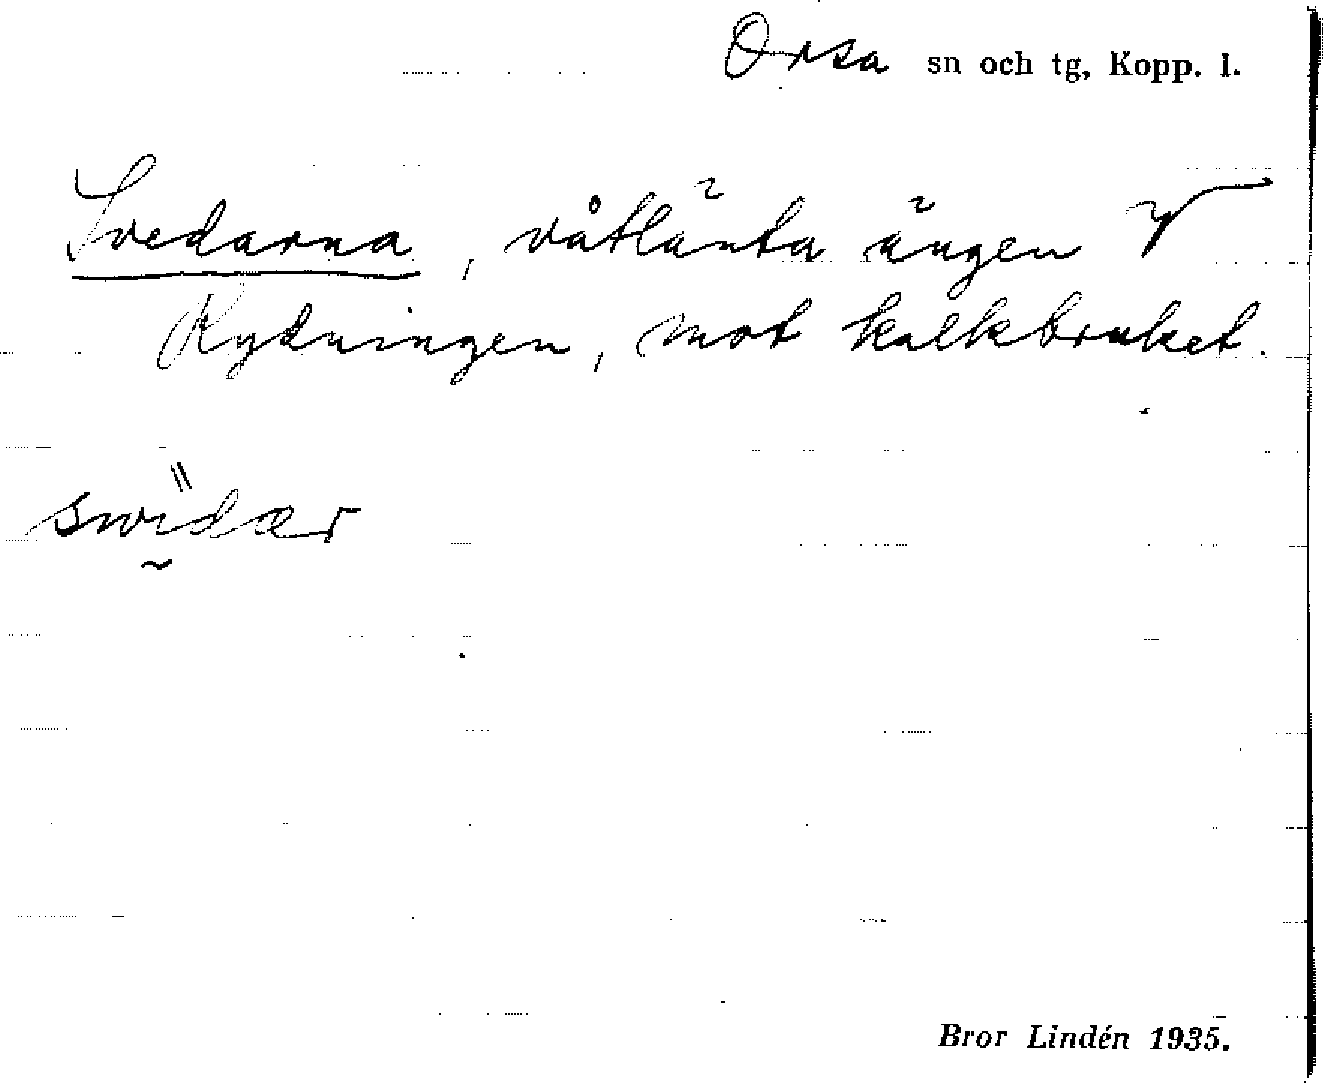 Orsa sn och tg, Kopp. l.
Svedarna, våtlänta ängen V
Rydningen, mot kalkbruket.
swider
Bror Lindén 1935.